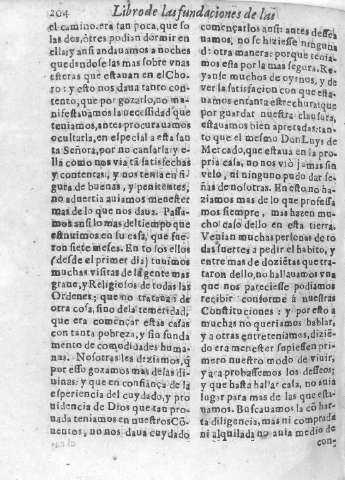 204 Libro de las fundaciones de las
el camino. era tan poca, que so
las dos, otres podian dormir en
ella; y ansi andauamos a noches
quedandose las mas sobre vnas
esteras que estauan en el Cho
ro: y esto nos daua tanto con
tento, que por gozarlo, no ma
nifestauamos la necessidad que
teniamos, antes procurauamos
ocultarla, en especial a esta san
ta Señora, por no cansarla: y e-
lla como nos via tã satisfechas
y contentas, y nos tenia en si
gura de buenas, y penitentes,
no aduertia auiamos menester
mas de lo que nos daua. Passa-
mos ansi lo mas del tiempo que
estuuimos en su casa, que fue-
ron siete meses. En to los ellos
(desde el primer dia) tuuimos
muchas visitas de la gente mas
graue, y Religiosos de todas las
Ordenes; que no tratauan de
otra cosa, sino de la temeridad,
que era començar estas casas
con tanta pobreza, y sin funda
mento de comodidades huma-
nas. Nosotras les deziamos, q̃
por esso gozamos mas de las di-
uinas: y que en confiança de la
esperiencia del cuydado, y pro
uidencia de Dios que tan pro-
uada teniamos en nuestros Cõ-
uentos, no nos daua cuydado
començarlos ansi: antes dessea
uamos, no se hiziesse ninguna
de otra manera: porque tenia-
mos esta por la mas segura. Re
yanse muchos de oyrnos, y de
ver la satisfacion con que esta-
uamos en tanta estrechura; que
por guardar nuestra clausura,
estauamos bien apretadas: tan-
to que el mesmo Don Luys de
Mercado, que estaua en la pro-
pria casa, no nos viò jamas sin
velo, ni ninguno pudo dar se-
ñas de nosotras. En esto no ha-
ziamos mas de lo que professa
mos siempre, mas hazen mu-
cho caso dello en esta tierra.
Venian muchas personas de to
das suertes a pedir el habito, y
entre mas de doziẽtas que tra-
taron dello, no hallauamos vna
que nos pareciesse podiamos
recibir conforme à nuestras
Constituciones: y por esto a
muchas no queriamos hablar,
y a otras entreteniamos, dizien
do era menester supiessen pri-
mero nuestro modo de viuir,
y aca prouassemos los desseos;
y que hasta hallar casa, no auia
lugar para mas de las que esta-
uamos. Buscauamos la cõ har-
ta diligencia, mas ni comprada
ni alquilada no auia medio de
con-